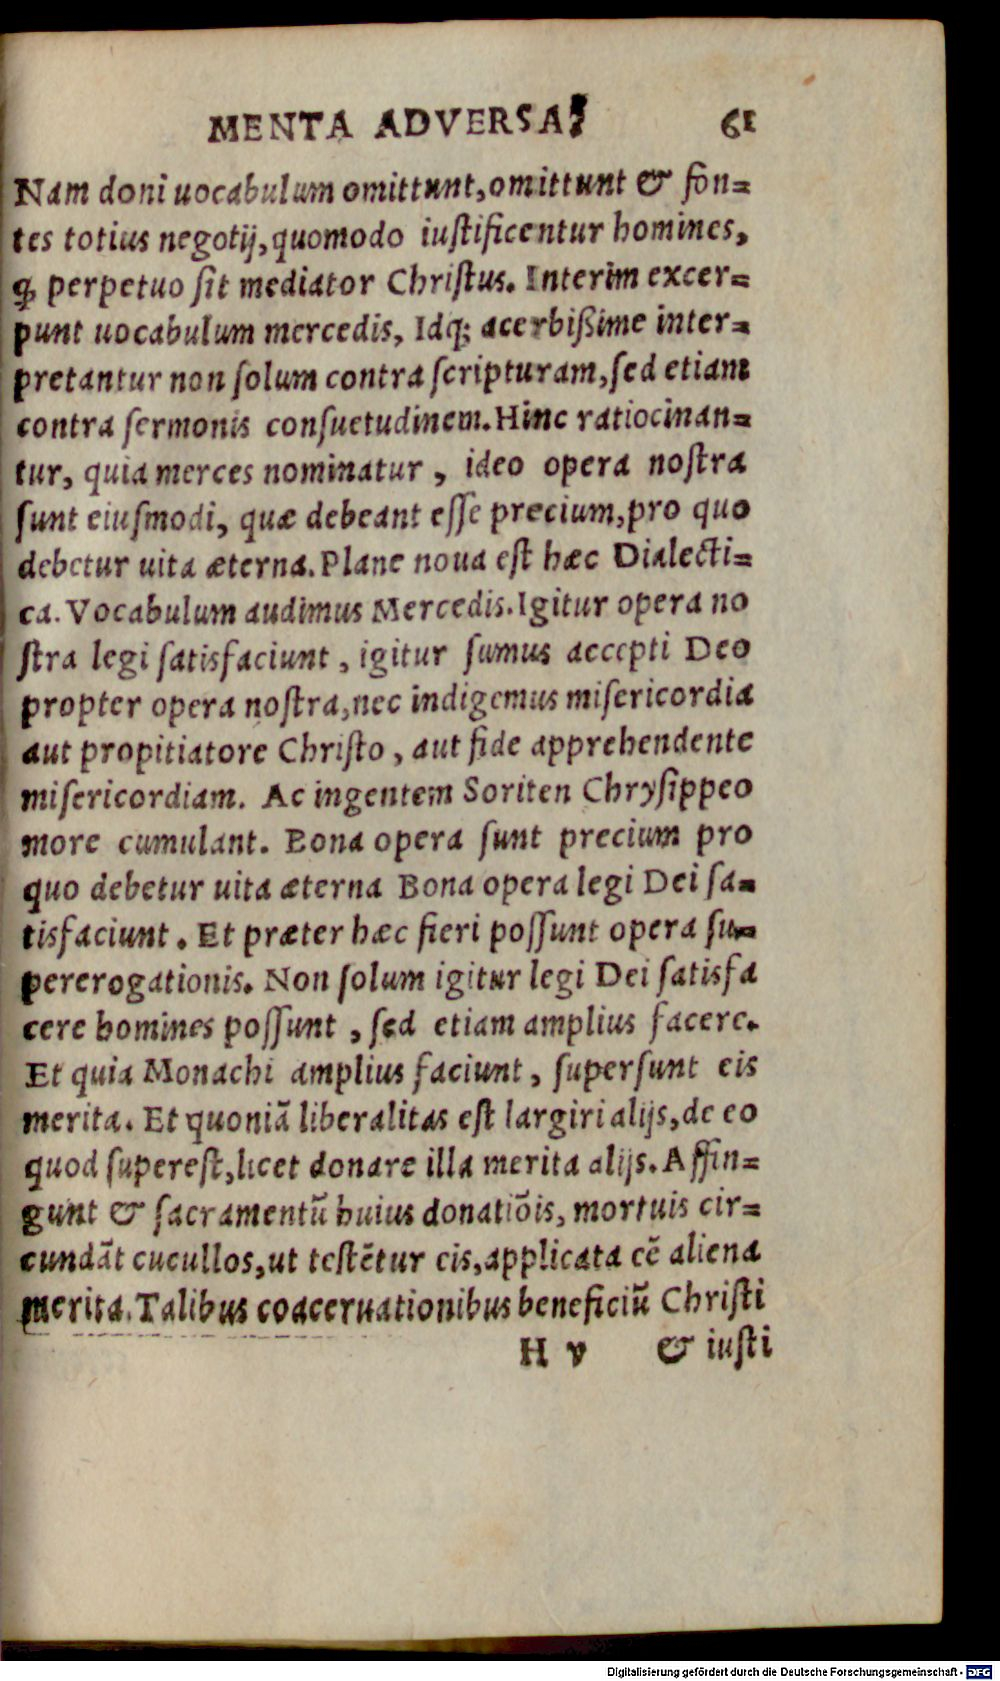 MENTA ADVERSA 61
Nam doni uocabulum omittunt, omittunt & fon-
tes totius negotij, quomodo iustificentur homines,
ꝙ perpetuo sit mediator Christus. Interim excer-
punt uocabulum mercedis, Idq; acerbißime inter-
pretantur non solum contra scripturam, sed etiam
contra sermonis consuetudinem. Hinc ratiocinan-
tur, quia merces nominatur, ideo opera nostra
sunt eiusmodi, quæ debeant esse precium, pro quo
debetur uita æterna. Plane noua est hæc Dialecti-
ca. Vocabulum audimus Mercedis. Igitur opera no
stra legi satisfaciunt, igitur sumus accepti Deo
propter opera nostra, nec indigemus misericordia
aut propitiatore Christo, aut fide apprehendente
misericordiam. Ac ingentem Soriten Chrysippeo
more cumulant. Bona opera sunt precium pro
quo debetur uita æterna Bona opera legi Dei sa-
tisfaciunt. Et præter hæc fieri possunt opera su-
pererogationis. Non solum igitur legi Dei satisfa
cere homines possunt, sed etiam amplius facere.
Et quia Monachi amplius faciunt, supersunt eis
merita. Et quoniā liberalitas est largiri alijs, de eo
quod superest, licet donare illa merita alijs. Affin-
gunt & sacramentū huius donatiōis, mortuis cir-
cundāt cucullos, ut testētur eis, applicata eē aliena
merita. Talibus coaceruationibus beneficiū Christi
H v & iusti
Digitalisierung gefördert durch die Deutsche Forschungsgemeinschaft - DFG